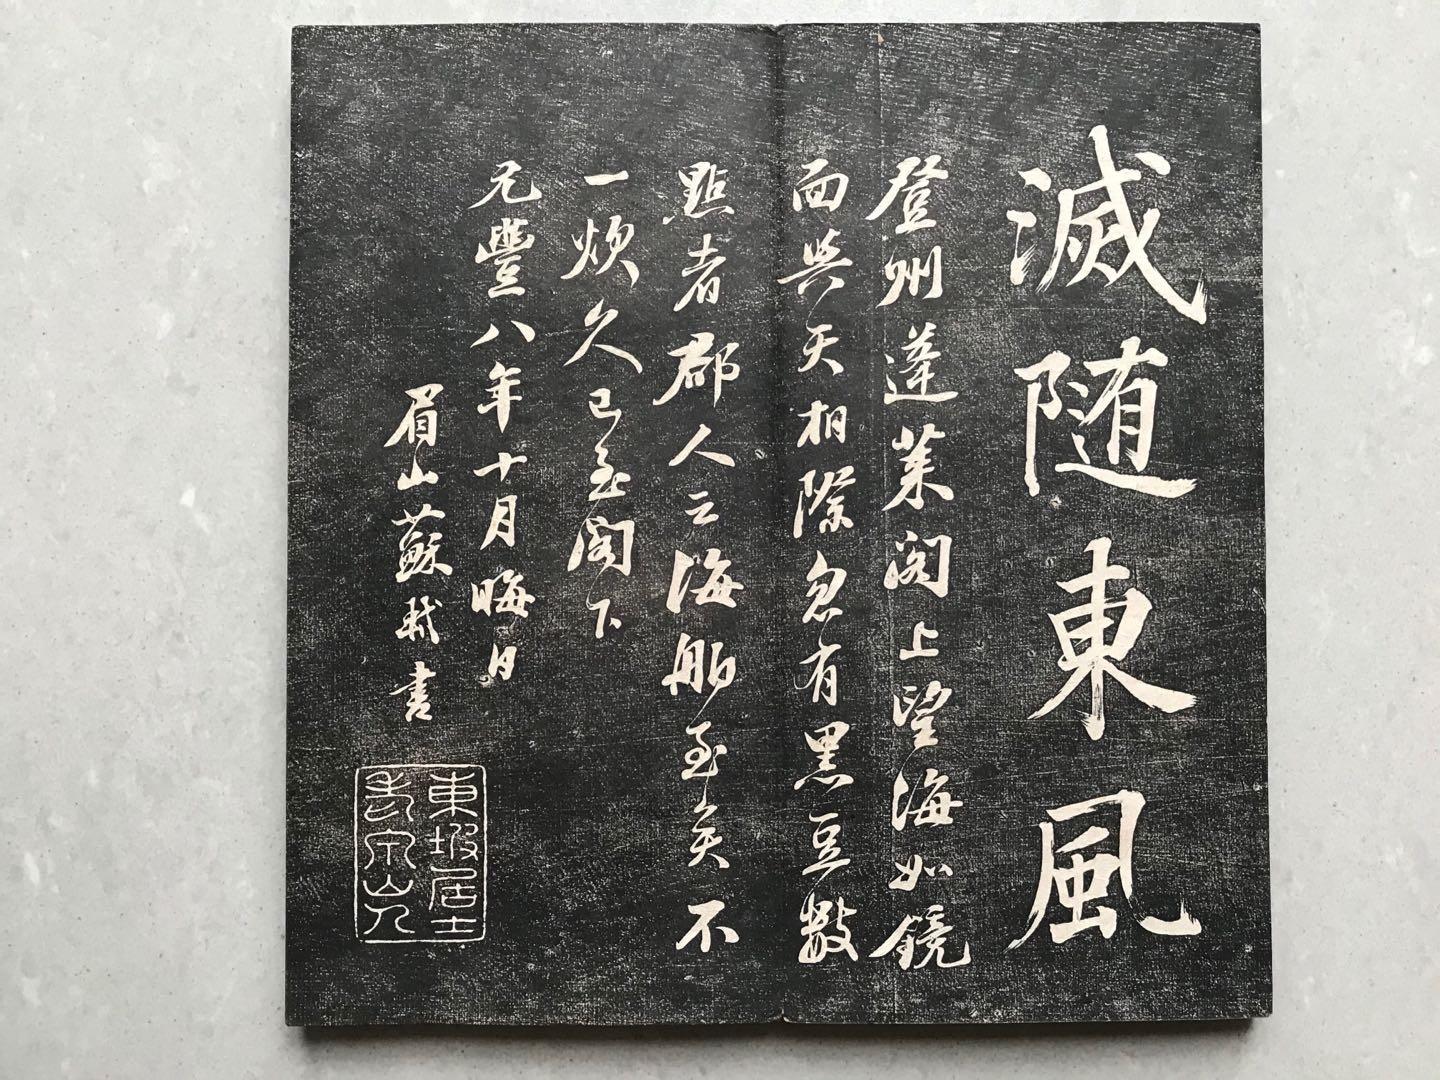 滅随東風
登州蓬萊閣上望海如鏡
面與天相際忽有黑豆數
點者郡人云海舶至矣不
一炊久已至閣下
元豐八年十月晦日
眉山蘇軾書
東坡居士
老泉山人